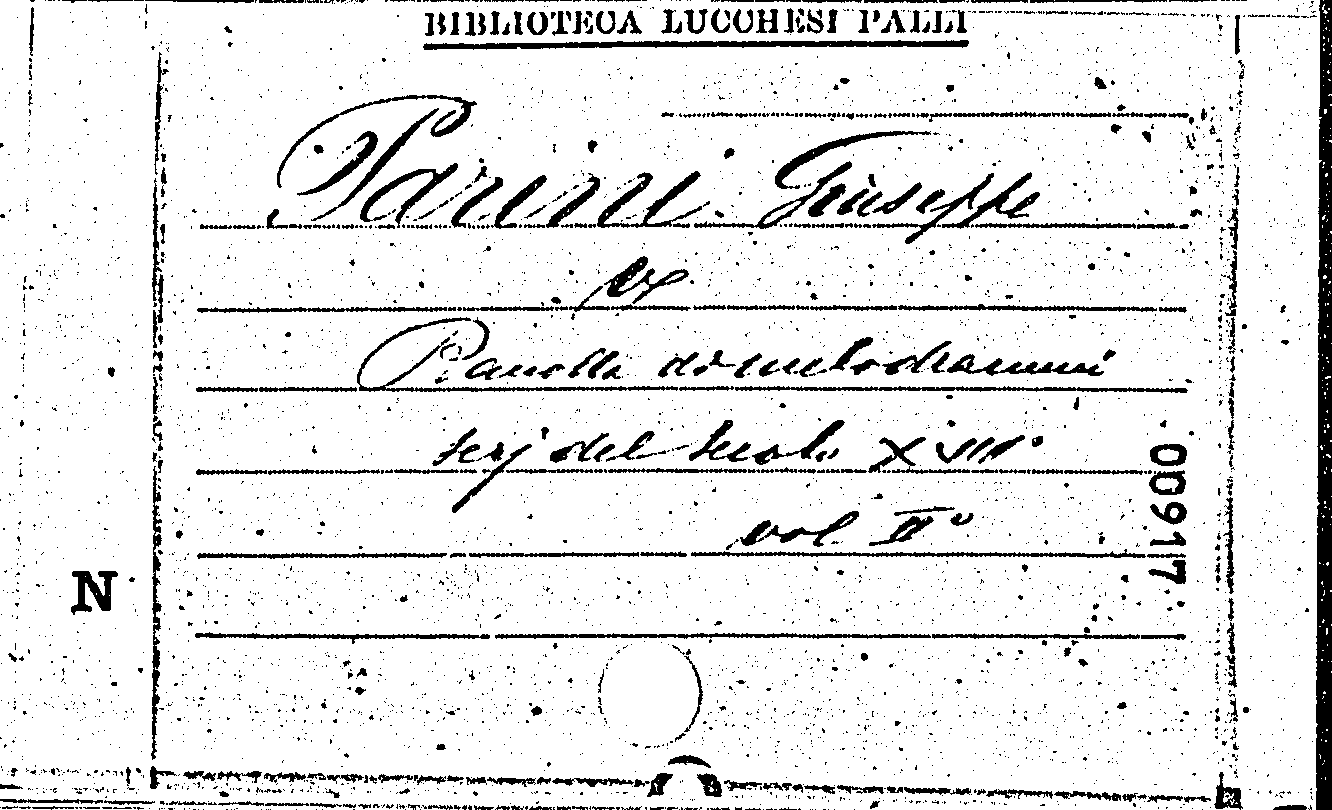 BIBLIOTECA LUCCHESI PALLI
Parini Giuseppe
Raccolta di melodrammi
serj del Secolo XVIII°
vol II°
00917
N